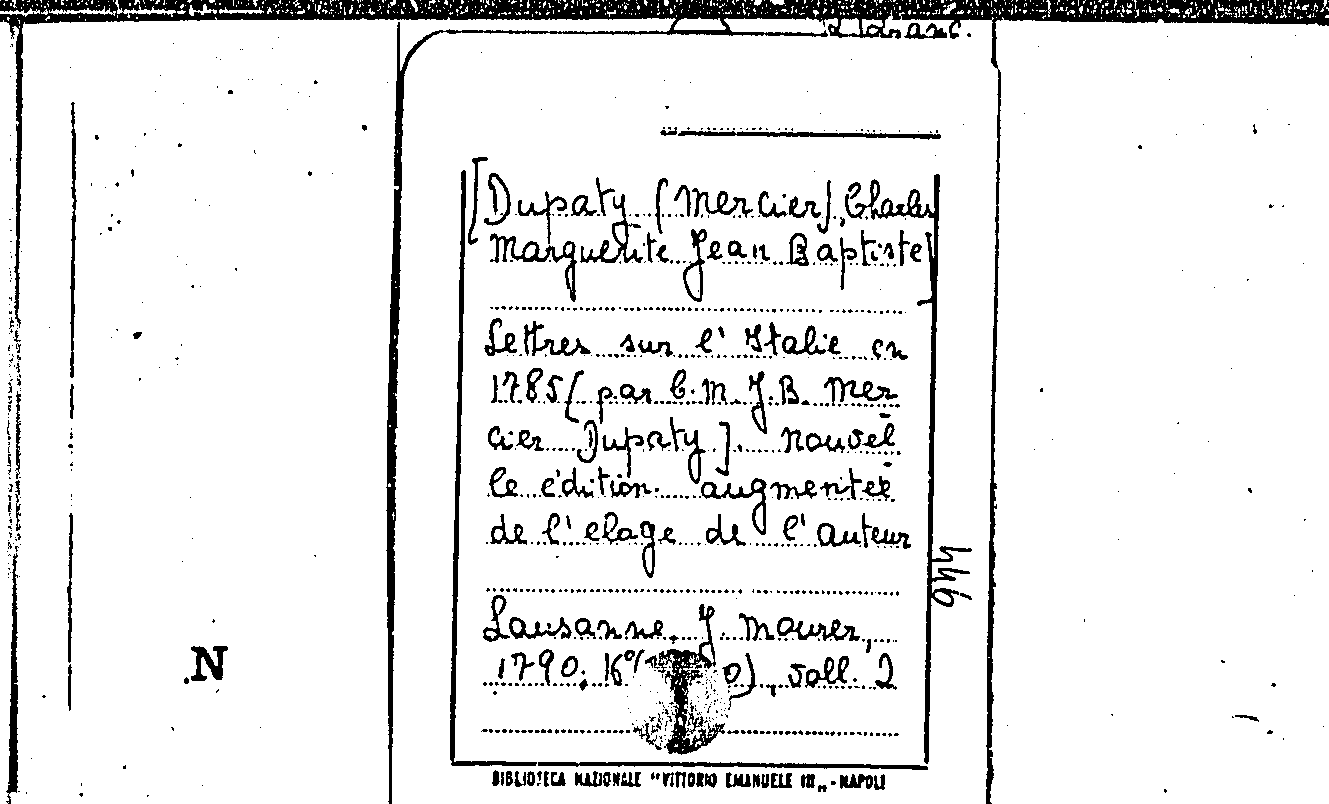 [Dupaty (Mercier), Charles
Marguerite Jean Baptiste]
Lettres sur l' Italie en
1785 [ par C. M. J. B. Mer
cier Dupaty ]. nouvel
le édition augmentée
de l' elage de l' auteur
Lausanne, J. Mourer,
1790; 16° 0), voll. 2
446
N
BIBLIOTECA NAZIONALE "VITTORIO EMANUELE III„ - NAPOLI